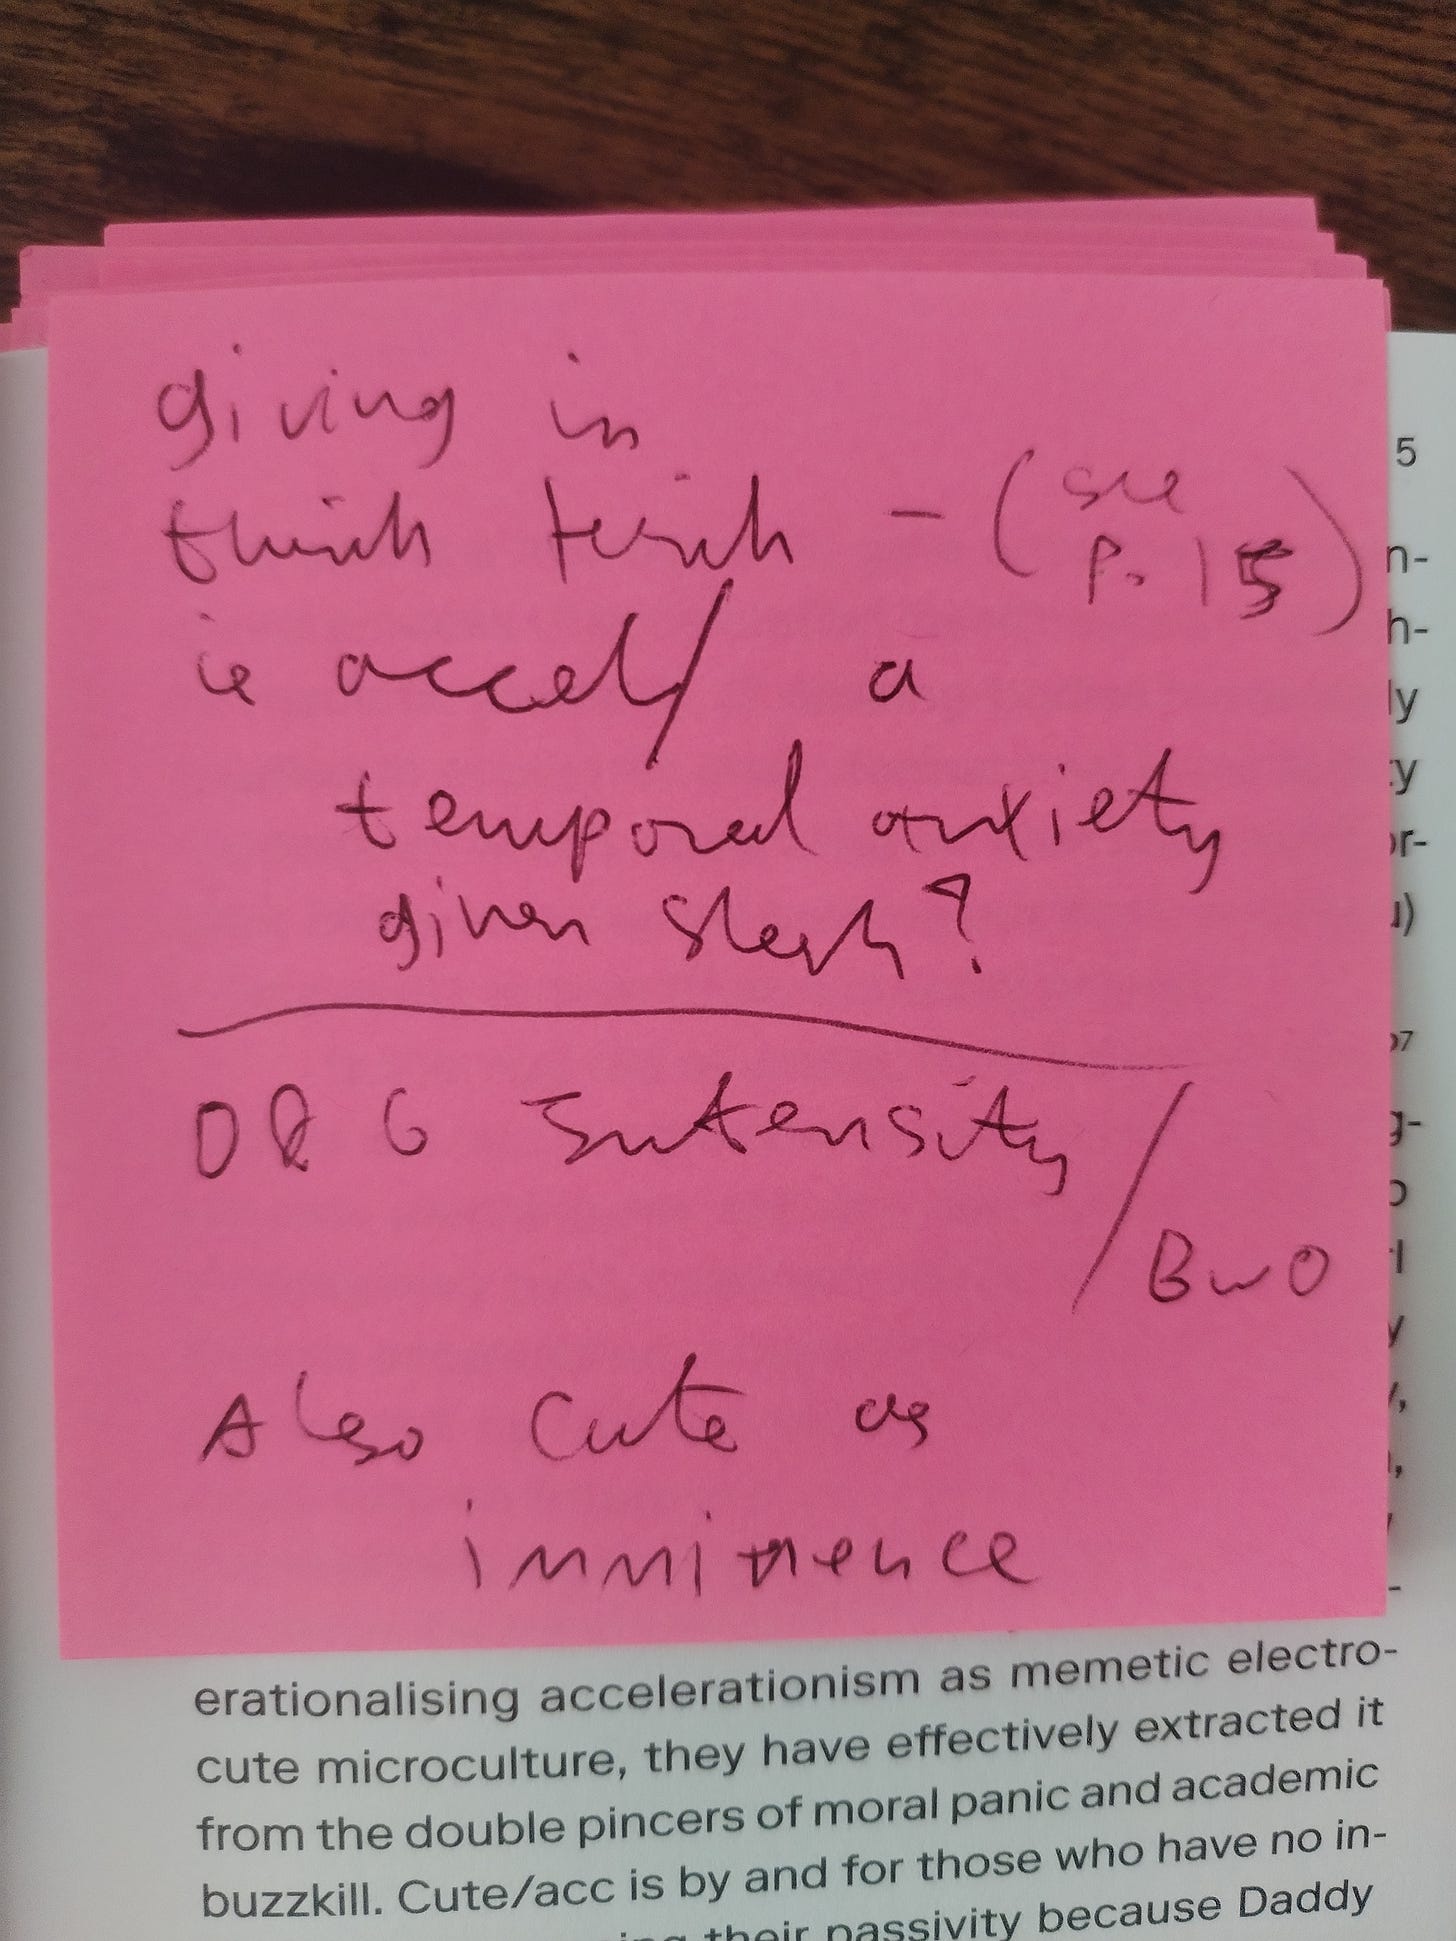 giving in
think - (see
p. 15)
is accel/ a
temporal anxiety
given slash?
OR G Intensity/
BwO
Also cute as
imminence
5
n-
h-
ly
ty
or-
u)
g-
erationalising accelerationism as memetic electro-
cute microculture, they have effectively extracted it
from the double pincers of moral panic and academic
buzzkill. Cute/acc is by and for those who have no in-
their passivity because Daddy